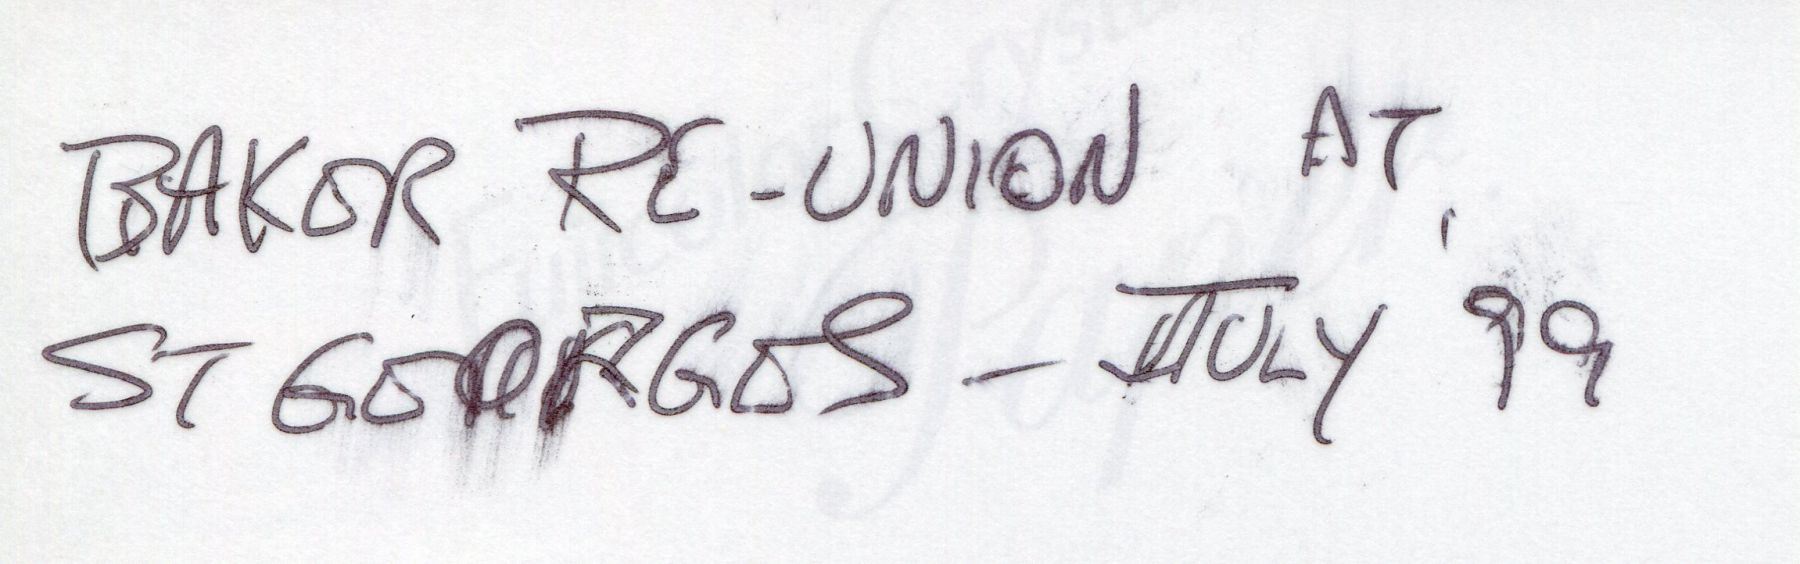 BAKER RE-UNION AT.
ST GEORGES - JULY 99